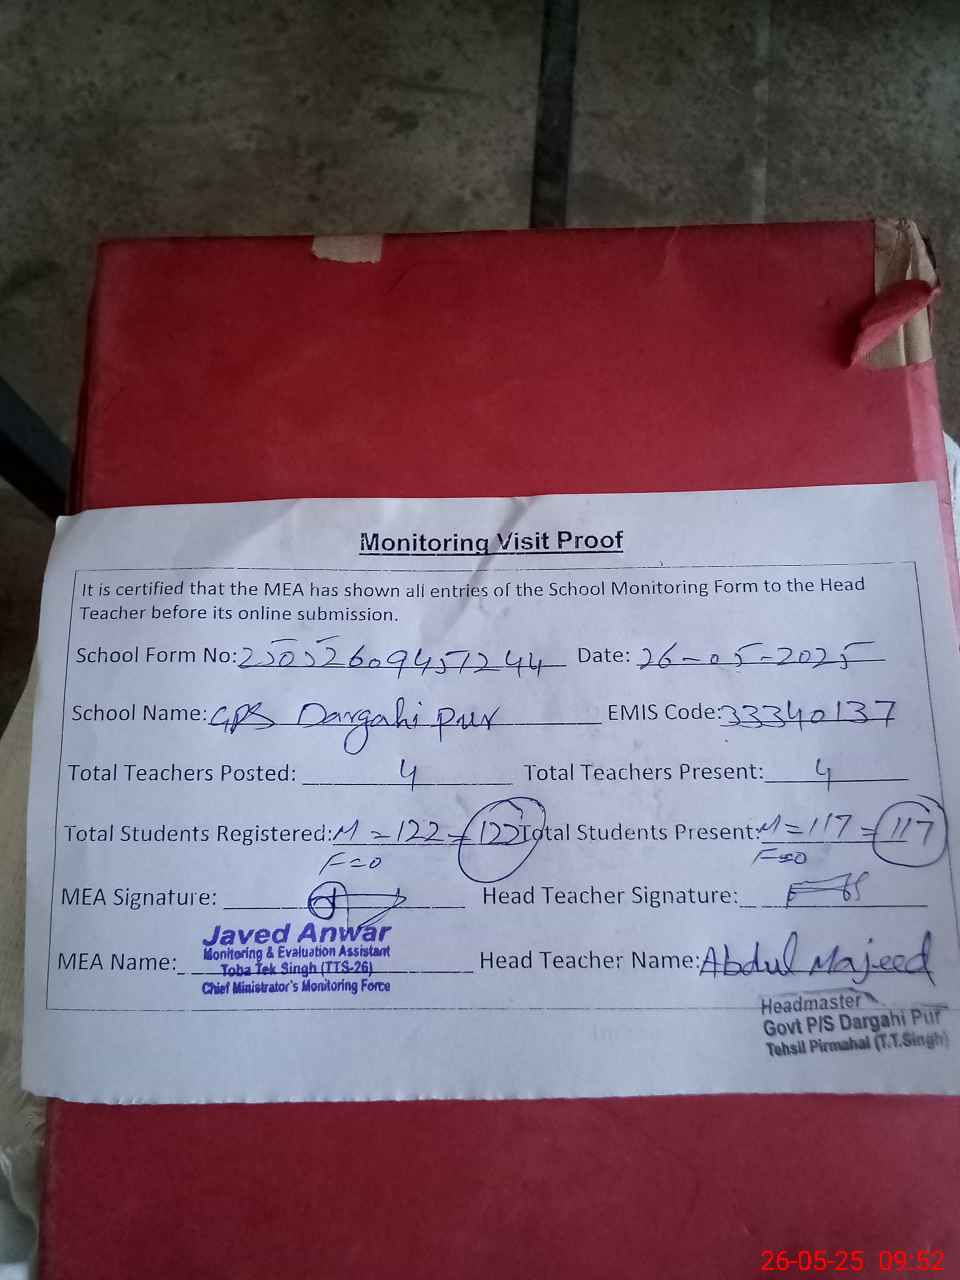 Monitoring Visit Proof
It is certified that the MEA has shown all entries of the School Monitoring Form to the Head
Teacher before its online submission.
School Form No: 25052609457244 Date: 26-05-2025
School Name: GPS Dargahi pur EMIS Code: 33340137
Total Teachers Posted: 4 Total Teachers Present: 4
Total Students Registered: M = 122 = 122 Total Students Present: M = 117 = 117
F=0 F=0
MEA Signature: Head Teacher Signature:
Javed Anwar
Monitoring & Evaluation Assistant
MEA Name: Toba Tek Singh (TTS-26) Head Teacher Name: Abdul Majeed
Chief Ministrator's Monitoring Force
Headmaster
Govt P/S Dargahi Pur
Tehsil Pirmahal (T.T.Singh)
26-05-25 09:52